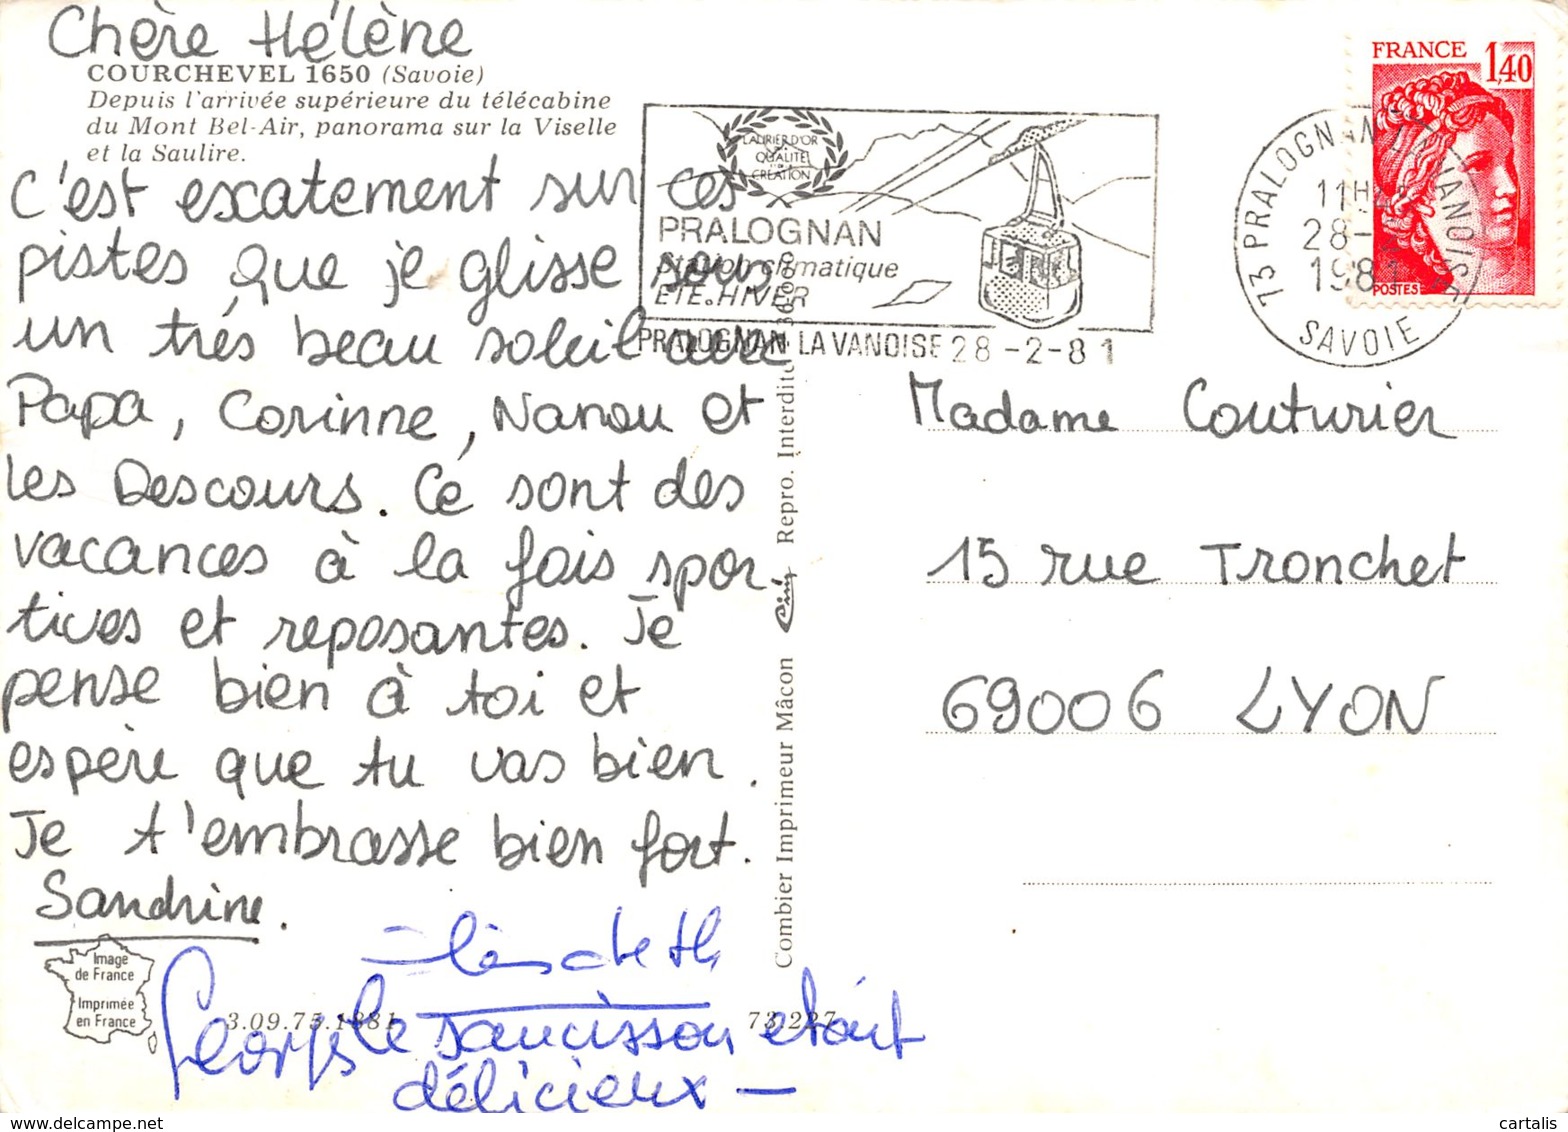 Chère Hélène
COURCHEVEL 1650 (Savoie)
Depuis l'arrivée supérieure du télécabine
du Mont Bel-Air, panorama sur la Viselle
et la Saulire.
C'est excatement sur ces
pistes que je glisse sous
un trés beau soleil avec
Papa, Corinne, Nanou et
les Descours. Ce sont des
vacances à la fois spor
tives et reposantes. Je
pense bien à toi et
espère que tu vas bien.
Je t'embrasse bien fort.
Sandrine.
Georges
le saucisson était
délicieux —
Image
de France
Imprimée
en France
3.09.75.1881
73.227
Combier Imprimeur Mâcon
Repro. Interdite
LAURIER D'OR
QUALITE
CREATION
PRALOGNAN
Station climatique
ETE.HIVER
PRALOGNAN LA VANOISE 28-2-81
73 PRALOGNAN LA VANOISE
11H
28-
1981
SAVOIE
FRANCE 1,40
POSTES
Madame Couturier
15 rue Tronchet
69006 LYON
www.delcampe.net
cartalis